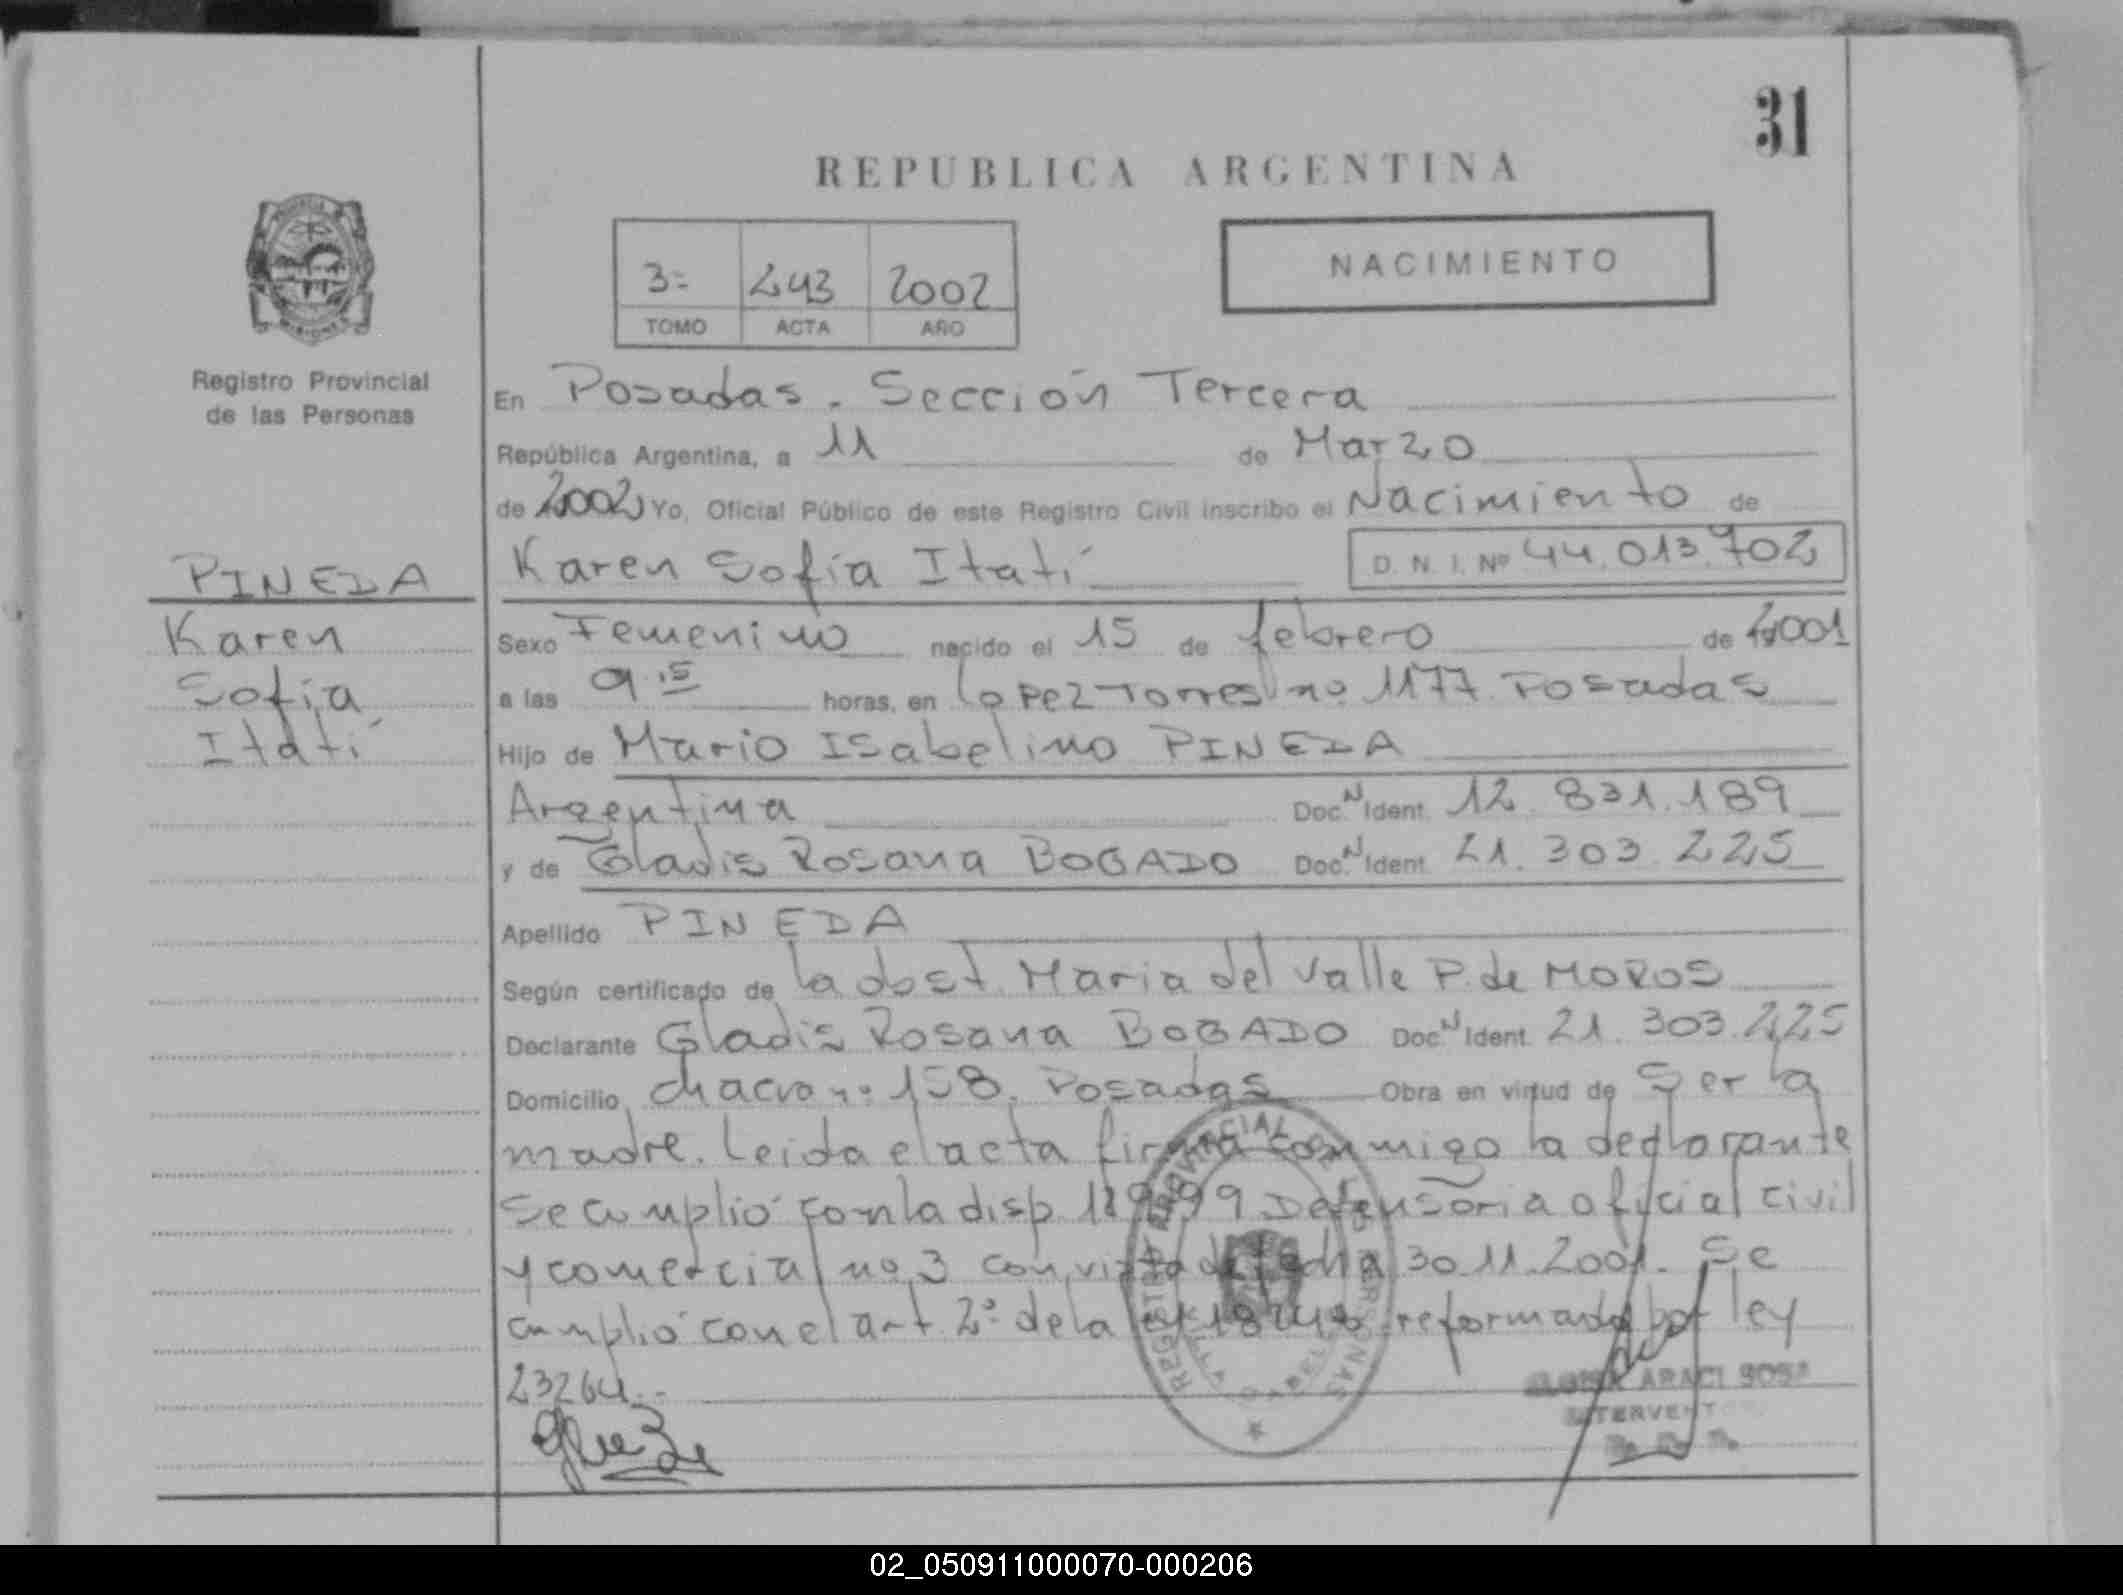 31
REPUBLICA ARGENTINA
3= 243 2002
TOMO ACTA AÑO
NACIMIENTO
Registro Provincial
de las Personas
En Posadas. Sección Tercera
República Argentina, a 11 de Marzo
de 2002 Yo, Oficial Público de este Registro Civil inscribo el Nacimiento de
Karen Sofía Itatí D. N. I. Nº 44.013.702
PINEDA
Karen
Sofía
Itatí
Sexo Femenino nacido el 15 de febrero de 2001
a las 9.15 horas, en Lopez Torres nº 1177 Posadas
Hijo de Mario Isabelino PINEDA
Argentina Doc. N Ident. 12.831.189
y de Gladis Rosana BOGADO Doc. N Ident. 21.303.225
Apellido PINEDA
Según certificado de la obst. Maria del Valle P. de MOROS
Declarante Gladis Rosana BOGADO Doc. N Ident. 21.303.225
Domicilio chacra nº 158. Posadas Obra en virtud de Ser la
madre. Leida el acta firma conmigo la declarante
Se cumplió con la disp. 199 Defensoria oficial civil
y comercial nº 3 con vista de fecha 30.11.2001. Se
cumplió con el art. 2º de la ley 18248 reformado por ley
23264.-
REGISTRO PROVINCIAL DE LAS PERSONAS
ARACI SOSA
INTERVENT
02_050911000070-000206